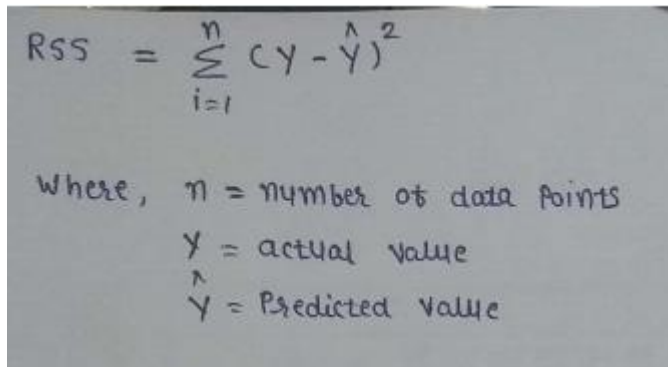 RSS = n Σ i=1 (Y - Ŷ)²
Where, n = number of data Points
Y = actual value
Ŷ = Predicted value